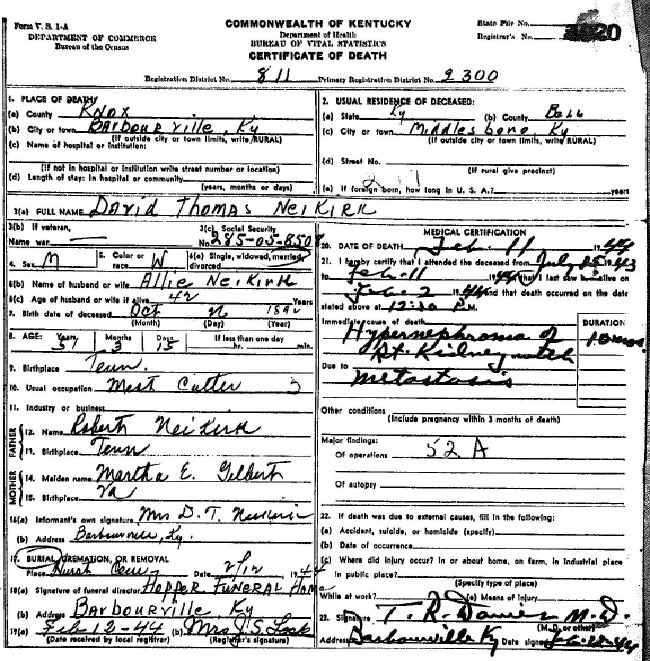 Form V. S. 1-A
DEPARTMENT OF COMMERCE
Bureau of the Census
COMMONWEALTH OF KENTUCKY
Department of Health
BUREAU OF VITAL STATISTICS
CERTIFICATE OF DEATH
State File No.
Registrar's No. 20
Registration District No. 811 Primary Registration District No. 2300
1. PLACE OF DEATH:
(a) County Knox
(b) City or town Barbourville, Ky
(If outside city or town limits, write RURAL)
(c) Name of hospital or institution:
(If not in hospital or institution write street number or location)
(d) Length of stay: in hospital or community
(years, months or days)
2. USUAL RESIDENCE OF DECEASED:
(a) State Ky (b) County Bell
(c) City or town Middlesboro, Ky
(If outside city or town limits, write RURAL)
(d) Street No.
(If rural give precinct)
(e) If foreign born, how long in U. S. A.? years
3(a) FULL NAME David Thomas Neikirk
3(b) If veteran,
Name war
3(c) Social Security
No. 285-05-8508
4. Sex M 5. Color or race W 6(a) Single, widowed, married, divorced
6(b) Name of husband or wife Allie Neikirk
6(c) Age of husband or wife if alive 42 Years
7. Birth date of deceased Oct 26 1892
(Month) (Day) (Year)
8. AGE: Years 51 Months 3 Days 15 If less than one day
hr. min.
9. Birthplace Tenn.
10. Usual occupation Meat Cutter
11. Industry or business
FATHER
12. Name Robert Neikirk
13. Birthplace Tenn
MOTHER
14. Maiden name Martha E. Gilbert
15. Birthplace Va
16(a) Informant's own signature Mrs D. T. Neikirk
(b) Address Barbourville, Ky.
17. BURIAL, CREMATION, OR REMOVAL
Place Cem Date 2/12 1944
18(a) Signature of funeral director Hopper Funeral Home
(b) Address Barbourville, Ky
19(a) Feb 12-44 (b) Mrs J. S.
(Date received by local registrar) (Registrar's signature)
MEDICAL CERTIFICATION
20. DATE OF DEATH Feb. 11 1944
21. I hereby certify that I attended the deceased from July 25 1943
to Feb-11 1944 that I last saw alive on
Feb-2 1944 and that death occurred on the date
stated above at 12:30 P.M.
Immediate cause of death DURATION
Hypernephroma of 10 mos.
Rt. Kidney with
Due to metastasis
Other conditions
(Include pregnancy within 3 months of death)
Major findings:
Of operations 52 A
Of autopsy
22. If death was due to external causes, fill in the following:
(a) Accident, suicide, or homicide (specify)
(b) Date of occurrence
(c) Where did injury occur? In or about home, on farm, in industrial place
in public place?
(Specify type of place)
While at work? (e) Means of injury
23. Signature T. R. Davies M.D.
(M. D. or other)
Address Barbourville Ky Date signed